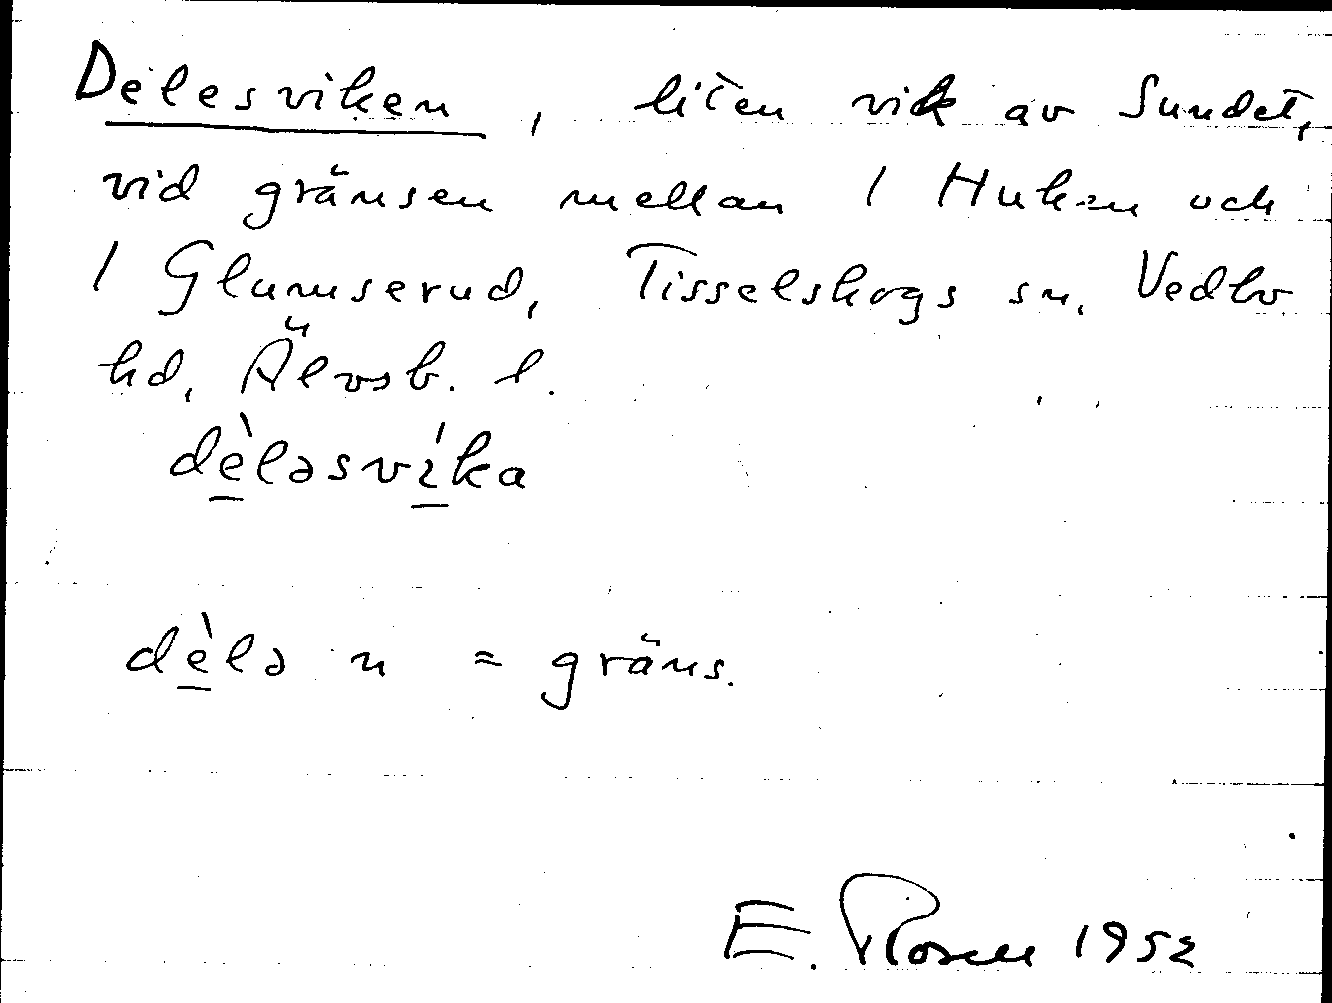 Delesviken, liten vik av Sundet,
vid gränsen mellan / Huken och
/ Glumserud, Tisselskogs sn, Vedbo
hd, Älvsb. l.
dèləsvíka
dèlə n = gräns.
E. Rosell 1952